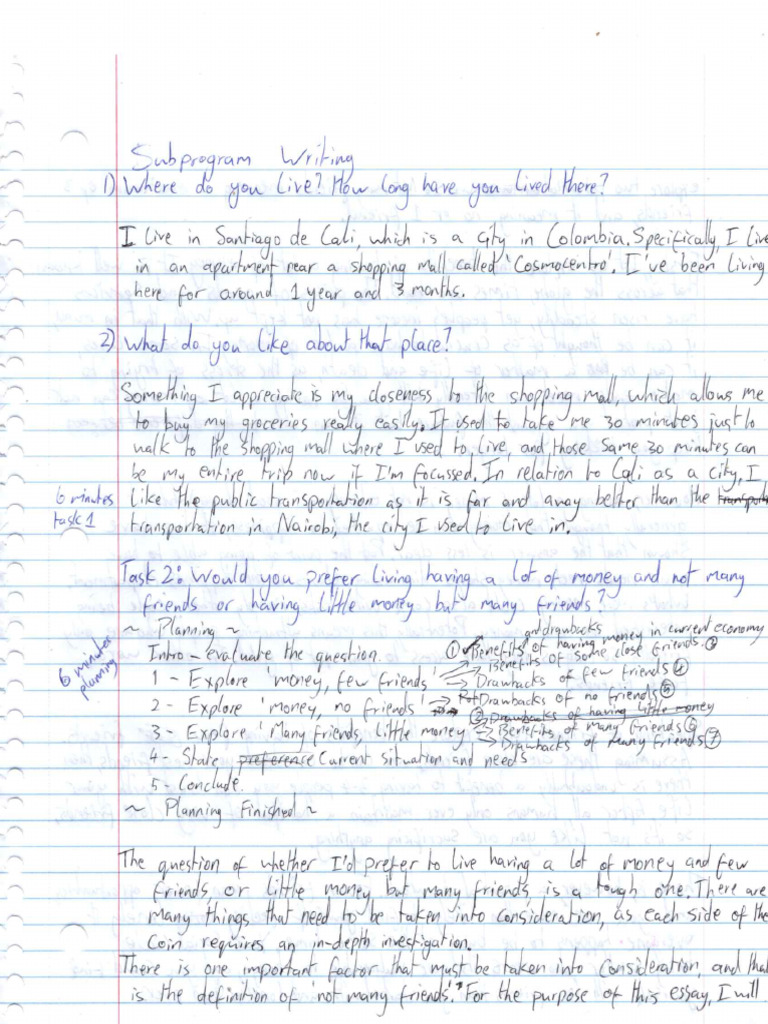 Subprogram Writing
1) Where do you live? How long have you lived there?
I live in Santiago de Cali, which is a city in Colombia. Specifically, I live
in an apartment near a shopping mall called 'Cosmocentro'. I've been living
here for around 1 year and 3 months.
2) What do you like about that place?
Something I appreciate is my closeness to the shopping mall, which allows me
to buy my groceries really easily. It used to take me 30 minutes just to
walk to the shopping mall where I used to live, and those same 30 minutes can
be my entire trip now if I'm focussed. In relation to Cali as a city, I
6 minutes
task 1
like the public transportation as it is far and away better than the
transportation in Nairobi, the city I used to live in.
Task 2: Would you prefer living having a lot of money and not many
friends or having little money but many friends?
~ Planning ~
6 minutes
planning
Intro - evaluate the question.
① Benefits and drawbacks of having money in current economy
1 - Explore 'money, few friends'
Benefits of some close friends. ③
Drawbacks of few friends ④
2 - Explore 'money, no friends'
Drawbacks of no friends ⑤
② Drawbacks of having little money
3 - Explore 'Many friends, little money
Benefits of many friends ⑥
Drawbacks of many friends ⑦
4 - State preference Current situation and needs
5 - Conclude.
~ Planning Finished ~
The question of whether I'd prefer to live having a lot of money and few
friends, or little money but many friends, is a tough one. There are
many things that need to be taken into consideration, as each side of the
coin requires an in-depth investigation.
There is one important factor that must be taken into consideration, and that
is the definition of 'not many friends'. For the purpose of this essay, I will